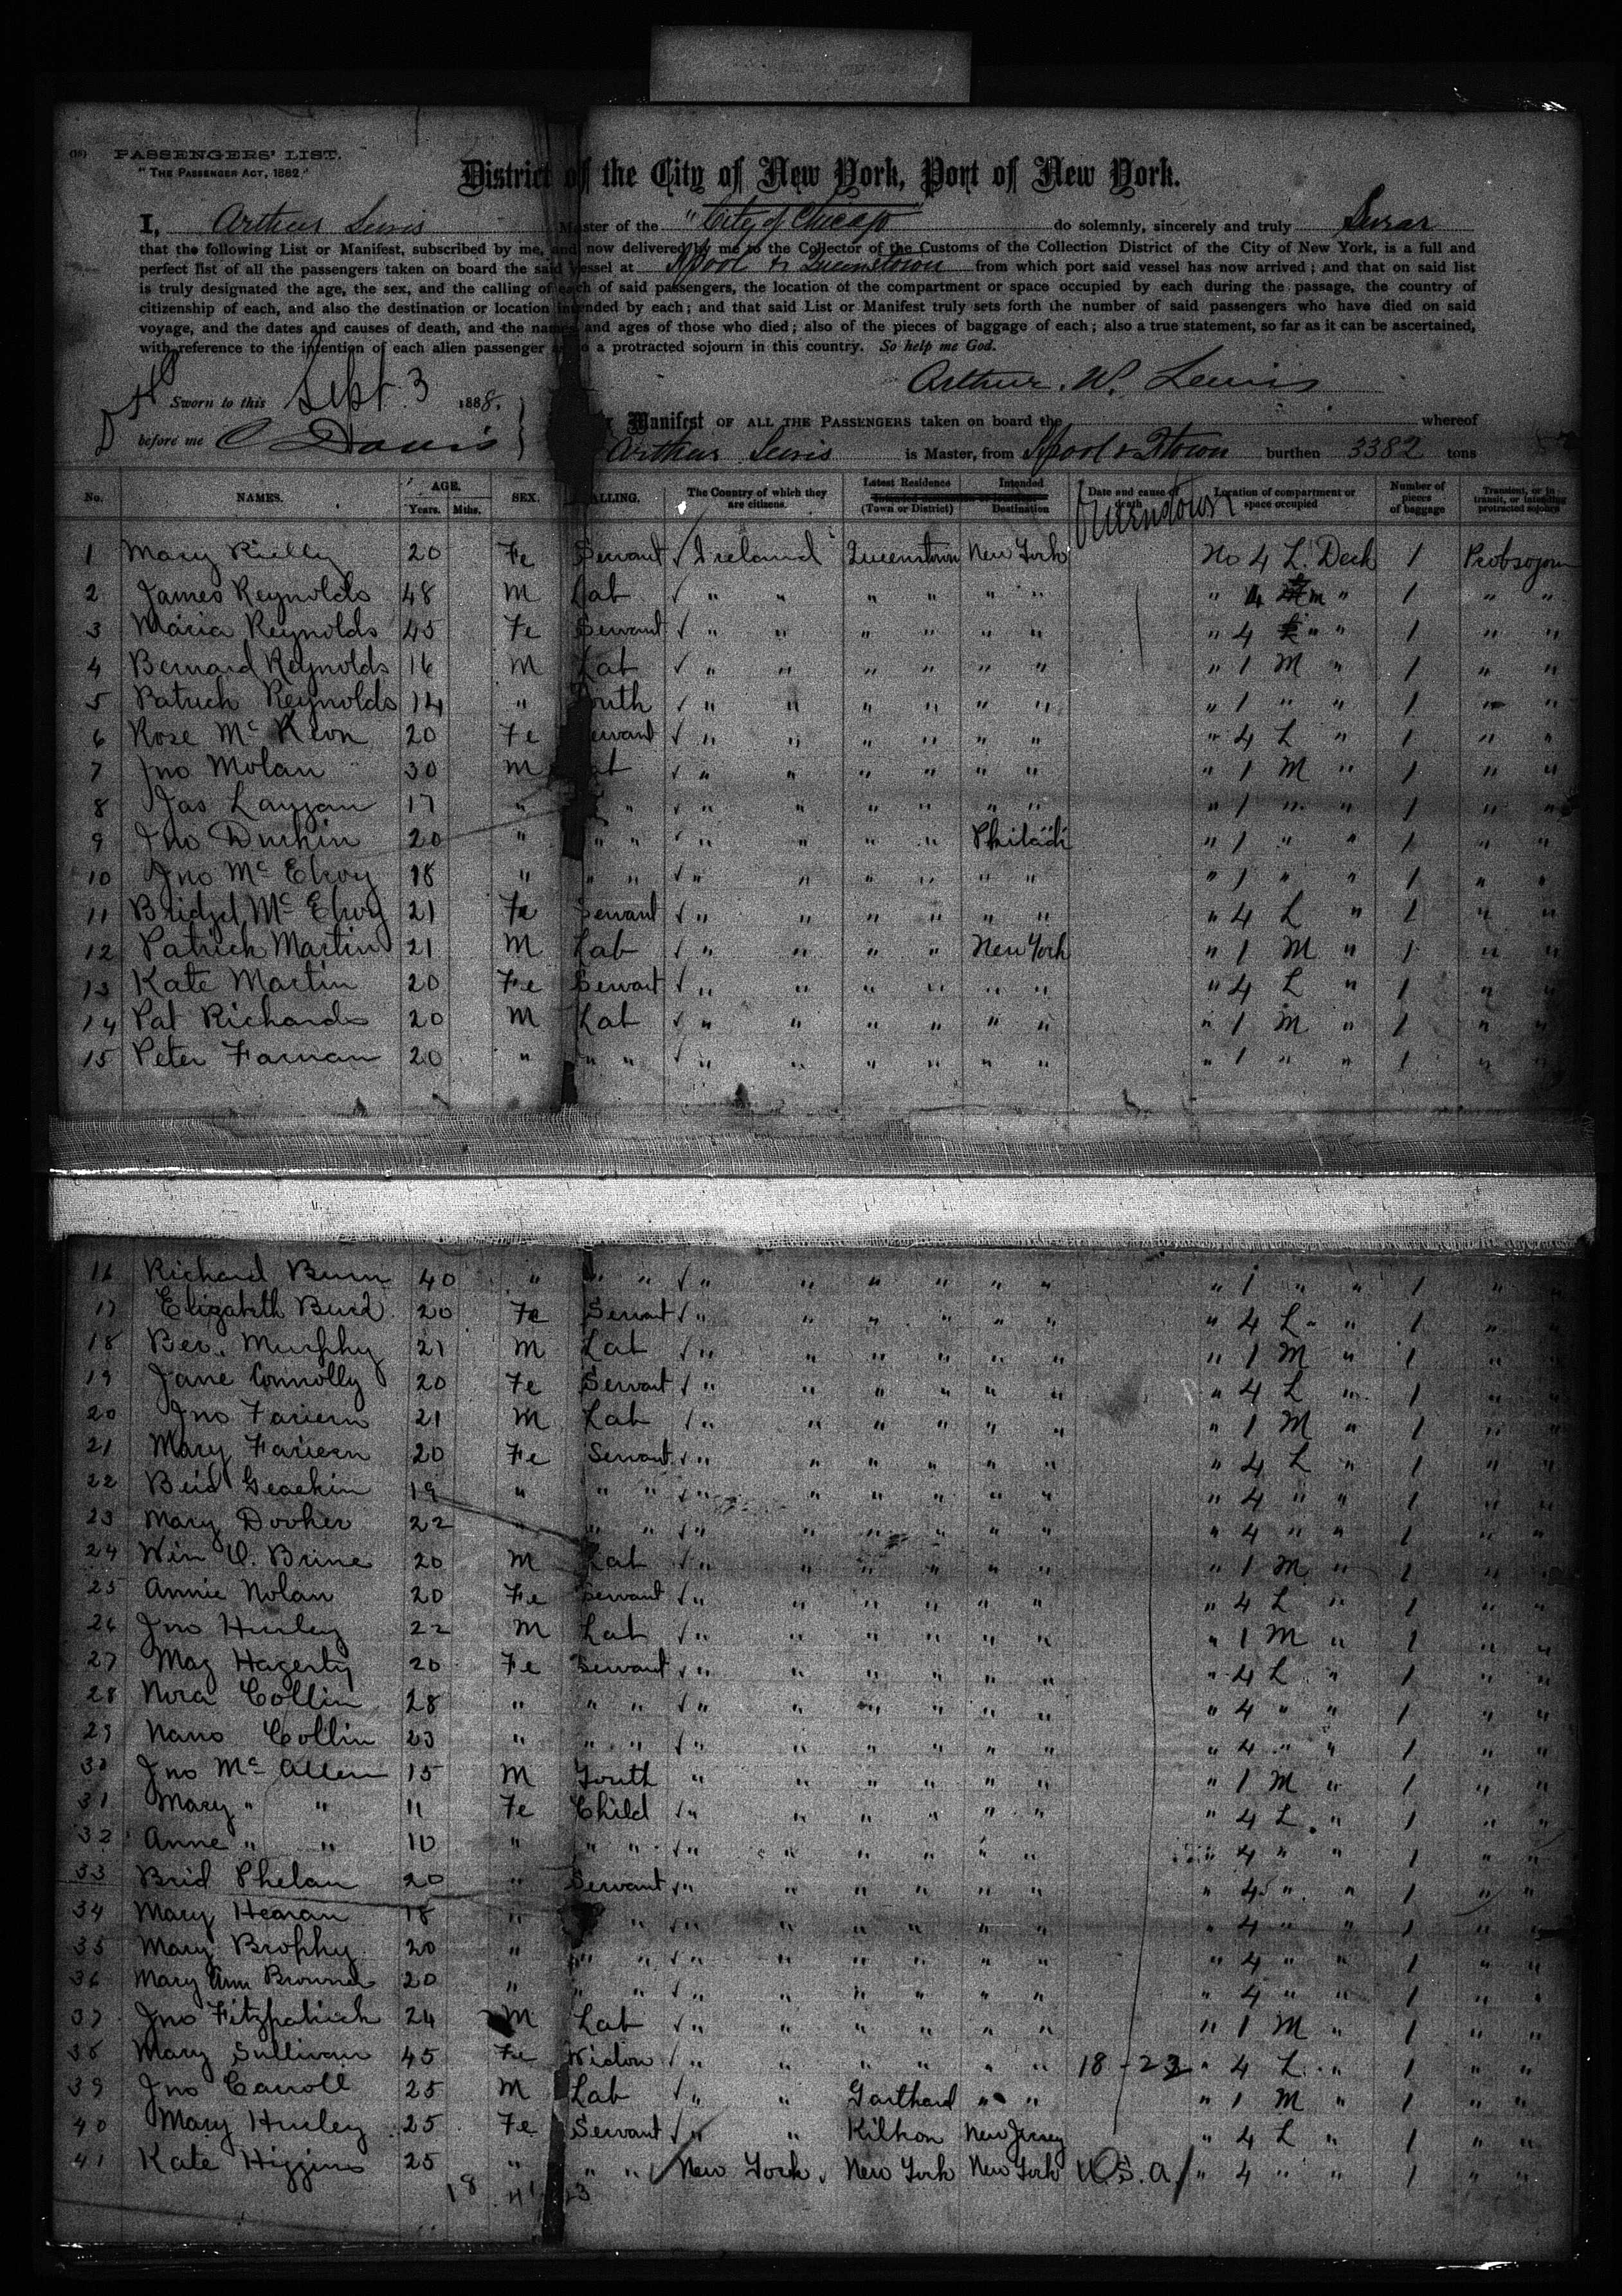 (16) PASSENGERS' LIST.
"THE PASSENGER ACT, 1882."
District of the City of New York, Port of New York.
I, Arthur Lewis Master of the "City of Chicago" do solemnly, sincerely and truly Swear
that the following List or Manifest, subscribed by me, and now delivered by me to the Collector of the Customs of the Collection District of the City of New York, is a full and
perfect list of all the passengers taken on board the said vessel at L'pool & Queenstown from which port said vessel has now arrived; and that on said list
is truly designated the age, the sex, and the calling of each of said passengers, the location of the compartment or space occupied by each during the passage, the country of
citizenship of each, and also the destination or location intended by each; and that said List or Manifest truly sets forth the number of said passengers who have died on said
voyage, and the dates and causes of death, and the names and ages of those who died; also of the pieces of baggage of each; also a true statement, so far as it can be ascertained,
with reference to the intention of each alien passenger as to a protracted sojourn in this country. So help me God.
Arthur. W. Lewis
Sworn to this Sept. 3 1888.
before me C Davis
Manifest OF ALL THE PASSENGERS taken on board the whereof
Arthur Lewis is Master, from L'pool & Q'town burthen 3382 tons
No. NAMES. AGE. Years. Mths. SEX. CALLING. The Country of which they are citizens. Latest Residence (Town or District) Intended Destination Date and cause of death Location of compartment or space occupied Number of pieces of baggage Transient, or in transit, or intending protracted sojourn
Queenstown
1 Mary Rielly 20 Fe Servant √ Ireland Queenstown New York No 4 L. Deck 1 Protsojourn
2 James Reynolds 48 M Lab √ " " " " " " " 4 m " 1 " "
3 Maria Reynolds 45 Fe Servant √ " " " " " " " 4 " " 1 " "
4 Bernard Reynolds 16 M Lab √ " " " " " " " 1 M " 1 " "
5 Patrick Reynolds 14 " Youth √ " " " " " " " 1 " " 1 " "
6 Rose McKeon 20 Fe Servant √ " " " " " " " 4 L " 1 " "
7 Jno Molan 30 M Lab √ " " " " " " " 1 M " 1 " "
8 Jas Langan 17 " " " √ " " " " " " " 1 " " 1 " "
9 Jno Durkin 20 " " " √ " " " " Philadi " 1 " " 1 " "
10 Jno McElroy 18 " " " √ " " " " " " " 1 " " 1 " "
11 Bridget McElroy 21 Fe Servant √ " " " " " " " 4 L " 1 " "
12 Patrick Martin 21 M Lab √ " " " " New York " 1 M " 1 " "
13 Kate Martin 20 Fe Servant √ " " " " " " " 4 L " 1 " "
14 Pat Richards 20 M Lab √ " " " " " " " 1 M " 1 " "
15 Peter Farnan 20 " " " √ " " " " " " " 1 " " 1 " "
16 Richard Burn 40 " " " √ " " " " " " " 1 " " 1 " "
17 Elizabeth 20 Fe Servant √ " " " " " " " 4 L " 1 " "
18 Ber. Murphy 21 M Lab √ " " " " " " " 1 M " 1 " "
19 Jane Connolly 20 Fe Servant √ " " " " " " " 4 L " 1 " "
20 Jno 21 M Lab √ " " " " " " " 1 M " 1 " "
21 Mary 20 Fe Servant √ " " " " " " " 4 L " 1 " "
22 Brid 19 " " " √ " " " " " " " 4 " " 1 " "
23 Mary Dooher 22 " " " √ " " " " " " " 4 " " 1 " "
24 Wm O. Brine 20 M Lab √ " " " " " " " 1 M " 1 " "
25 Annie Nolan 20 Fe Servant √ " " " " " " " 4 L " 1 " "
26 Jno Hurley 22 M Lab √ " " " " " " " 1 M " 1 " "
27 Mag Hagerty 20 Fe Servant √ " " " " " " " 4 L " 1 " "
28 Nora Collin 28 " " " √ " " " " " " " 4 " " 1 " "
29 Nano Collin 23 " " " √ " " " " " " " 4 " " 1 " "
30 Jno McAllen 15 M Youth " " " " " " " 1 M " 1 " "
31 Mary " " 11 Fe Child √ " " " " " " " 4 L " 1 " "
32 Anne " " 10 " " " √ " " " " " " " 4 " " 1 " "
33 Brid Phelan 20 " Servant √ " " " " " " " 4 " " 1 " "
34 Mary Hearan 18 " " √ " " " " " " " 4 " " 1 " "
35 Mary Brophy 20 " " " √ " " " " " " " 4 " " 1 " "
36 Mary Ann Browne 20 " " " √ " " " " " " " 4 " " 1 " "
37 Jno Fitzpatrick 24 M Lab √ " " " " " " " 1 M " 1 " "
38 Mary Sullivan 45 Fe Widow √ " " " " " " 18-23 " 4 L " 1 " "
39 Jno Carroll 25 M Lab √ " " " " " 1 M " 1 " "
40 Mary Hurley 25 Fe Servant √ " " New Jersey " 4 L " 1 " "
41 Kate Higgins 25 " " " √ New York New York New York U.S.A " 4 " " 1 " "
18 41 23